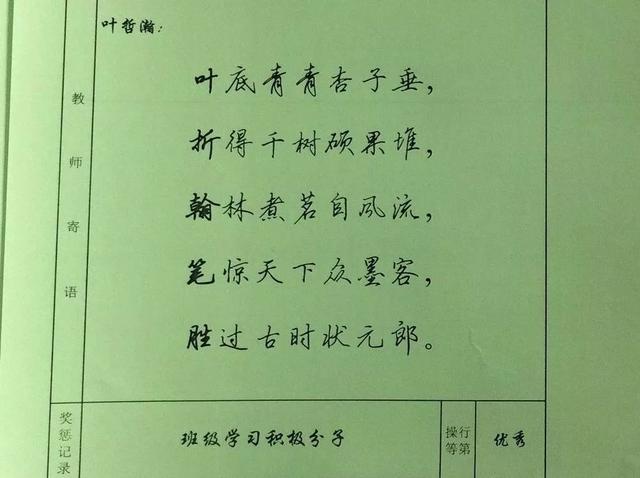 叶哲瀚：
叶底青青杏子垂，
折得千树硕果堆，
翰林煮茗自风流，
笔惊天下众墨客，
胜过古时状元郎。
教师寄语
奖惩记录
班级学习积极分子
操行等第
优秀